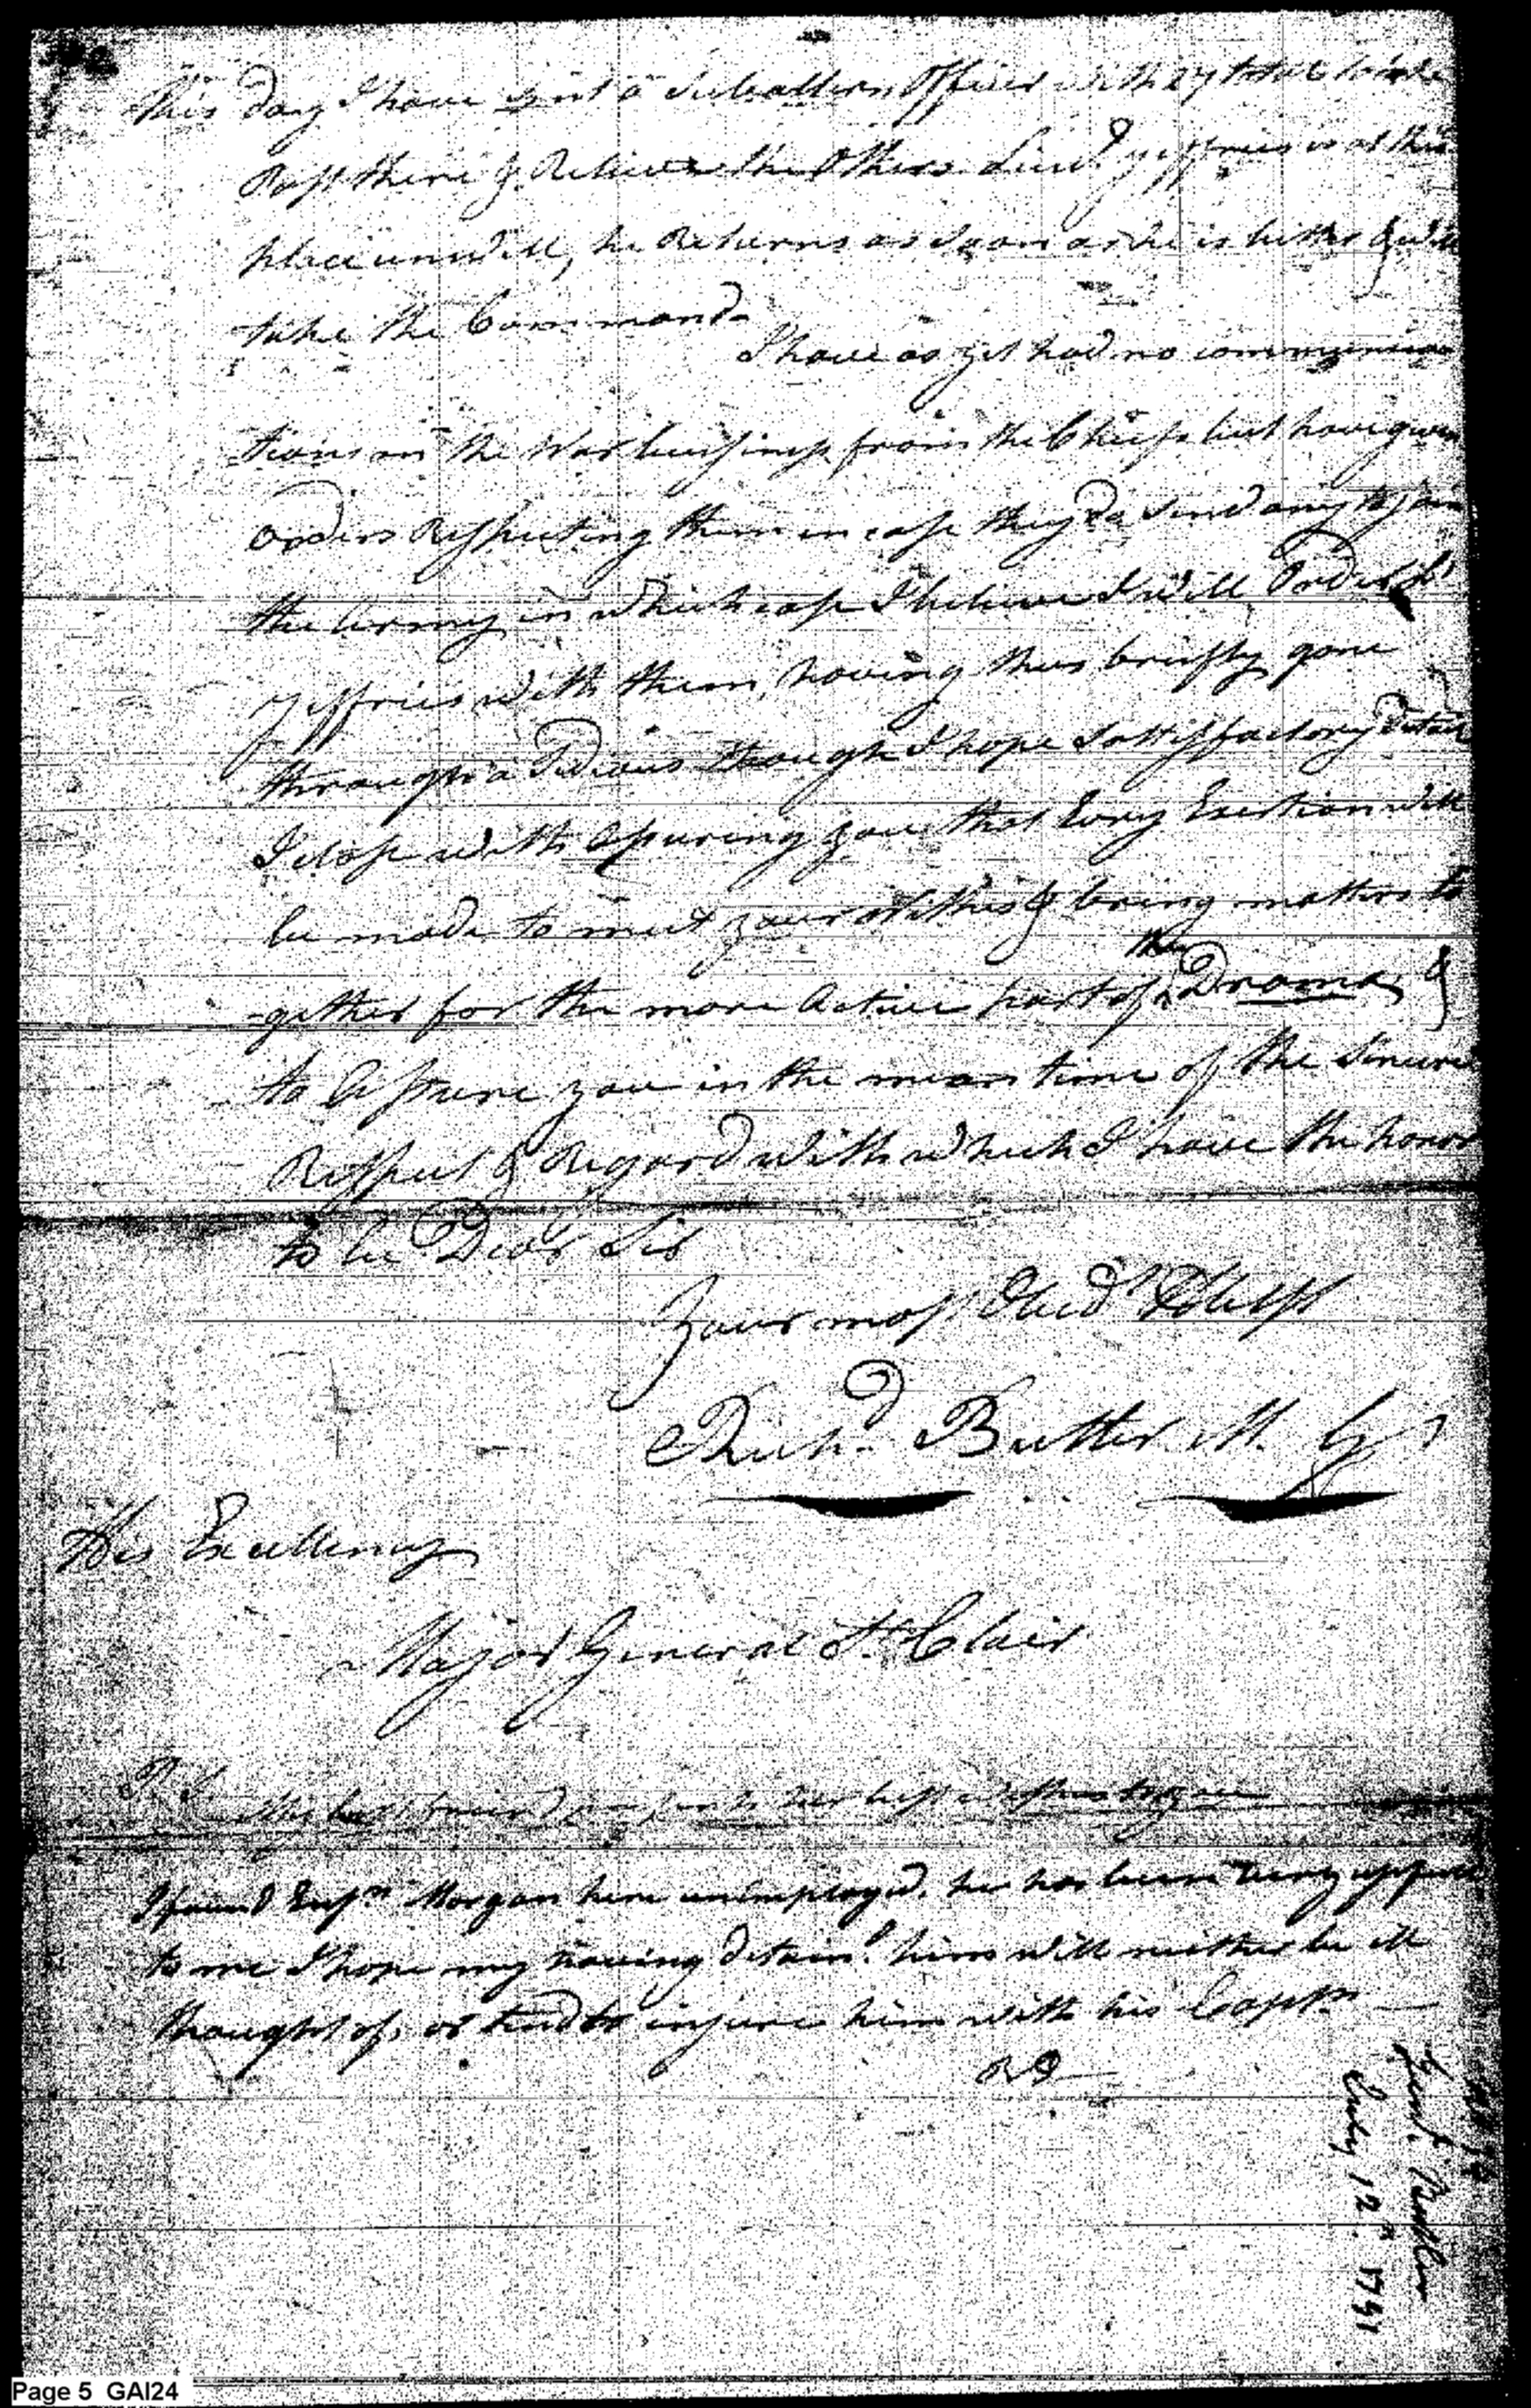 This day I have sent a Subaltern Officer with 27 total to take
Post there & Relieve the Others. Lieut. Jeffries is at this
place unwell, he Returns as Soon as he is better & will
take the Command
I have as yet had no communica
tions on the War bussiness from the Chiefs but have given
orders Respecting them in case they do Send any to join
the Army in which case I believe I will Order Lt
Jeffries with them, having thus briefly gone
through a Tedious though I hope Sattisfactory Detail
I close with Assuring you that Every Exertion will
be made to meet your Wishes & bring matters to
gether for the more Active part of the Drama, &
to Assure you in the mean time of the Sincere
Respect & Regard with which I have the honor
to be Dear Sir
Your most Obedt Hble St
Richd. Butler M. Gl
His Excellency
Major General St. Clair
P.S. My best friend presents her best wishes to you
I found Ensn Morgan here unimployed, he has been very
to me I hope my having detaind. him will neither be ill
thought of, or tend to injure him with his Captn
RB
Genl. Butler
July 12th 1791
Page 5 GAI24